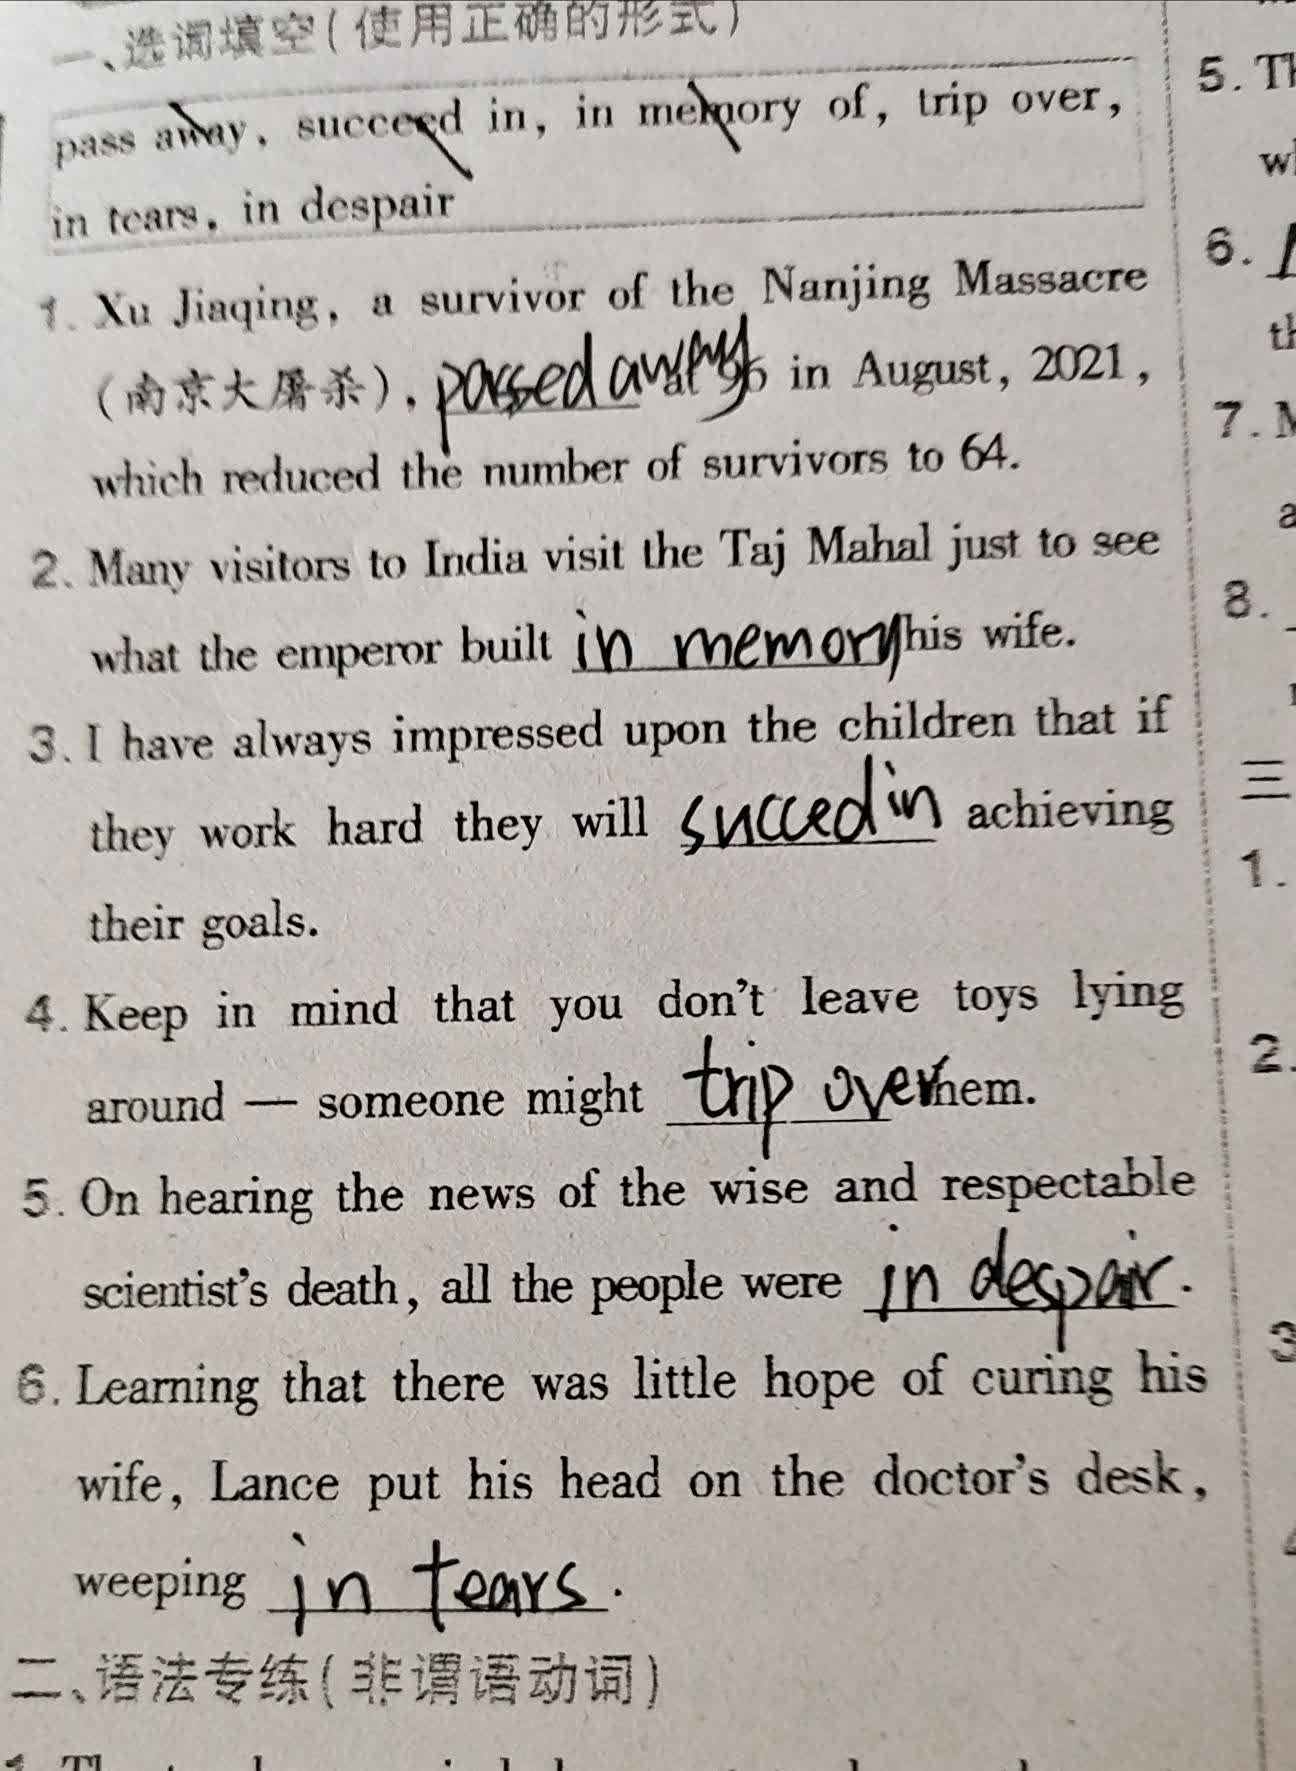 一、选词填空(使用正确的形式)
pass away, succeed in, in memory of, trip over,
in tears, in despair
1. Xu Jiaqing, a survivor of the Nanjing Massacre
(南京大屠杀), passed away at 96 in August, 2021,
which reduced the number of survivors to 64.
2. Many visitors to India visit the Taj Mahal just to see
what the emperor built in memory his wife.
3. I have always impressed upon the children that if
they work hard they will succed in achieving
their goals.
4. Keep in mind that you don't leave toys lying
around — someone might trip over them.
5. On hearing the news of the wise and respectable
scientist's death, all the people were in despair.
6. Learning that there was little hope of curing his
wife, Lance put his head on the doctor's desk,
weeping in tears.
二、语法专练(非谓语动词)
5.
6.
7.
8.
三
1.
2.
3